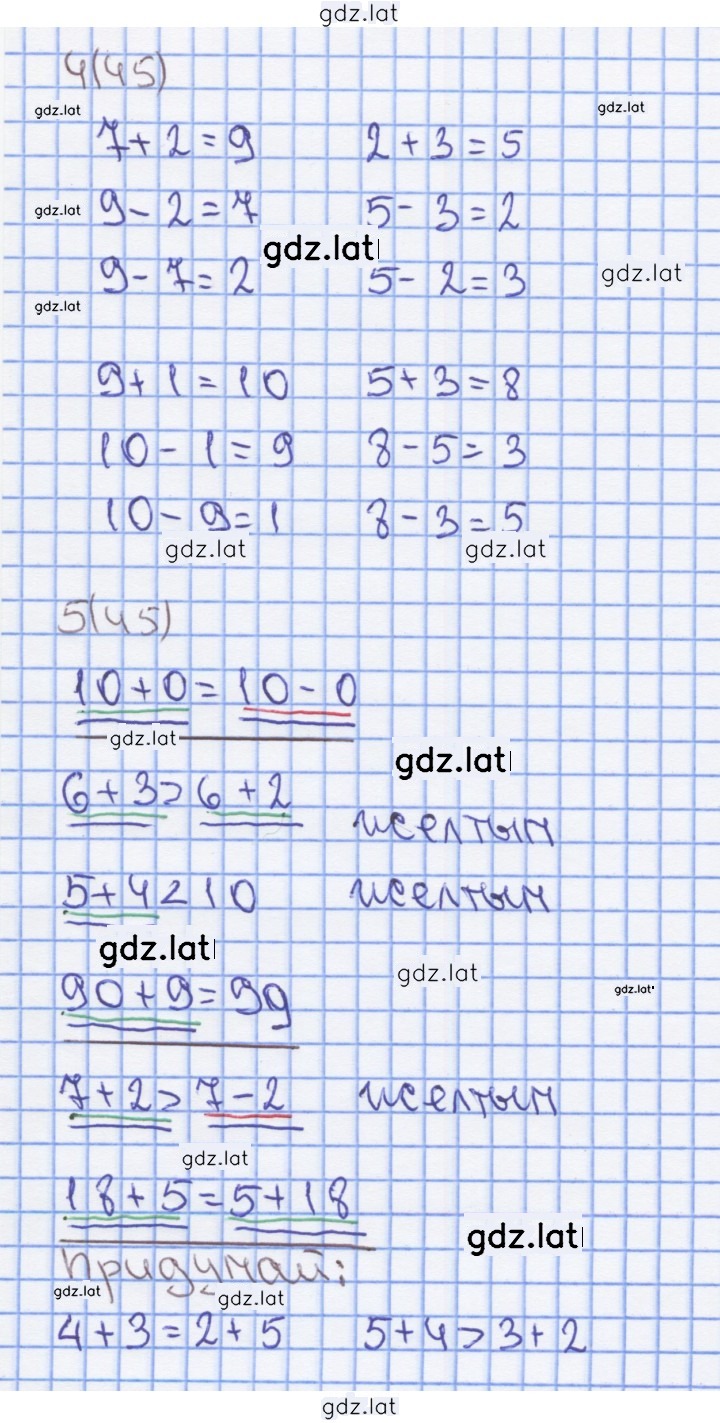 gdz.lat
4(45)
gdz.lat gdz.lat
7+2=9 2+3=5
gdz.lat 9-2=7 5-3=2
gdz.lat
9-7=2 5-2=3 gdz.lat
gdz.lat
9+1=10 5+3=8
10-1=9 8-5=3
10-9=1 8-3=5
gdz.lat gdz.lat
5(45)
10+0=10-0
gdz.lat gdz.lat
6+3>6+2
5+4<10
gdz.lat
gdz.lat gdz.lat
90+9=99
7+2>7-2
gdz.lat
18+5=5+18
gdz.lat
Придумай:
gdz.lat gdz.lat
4+3=2+5 5+4>3+2
gdz.lat